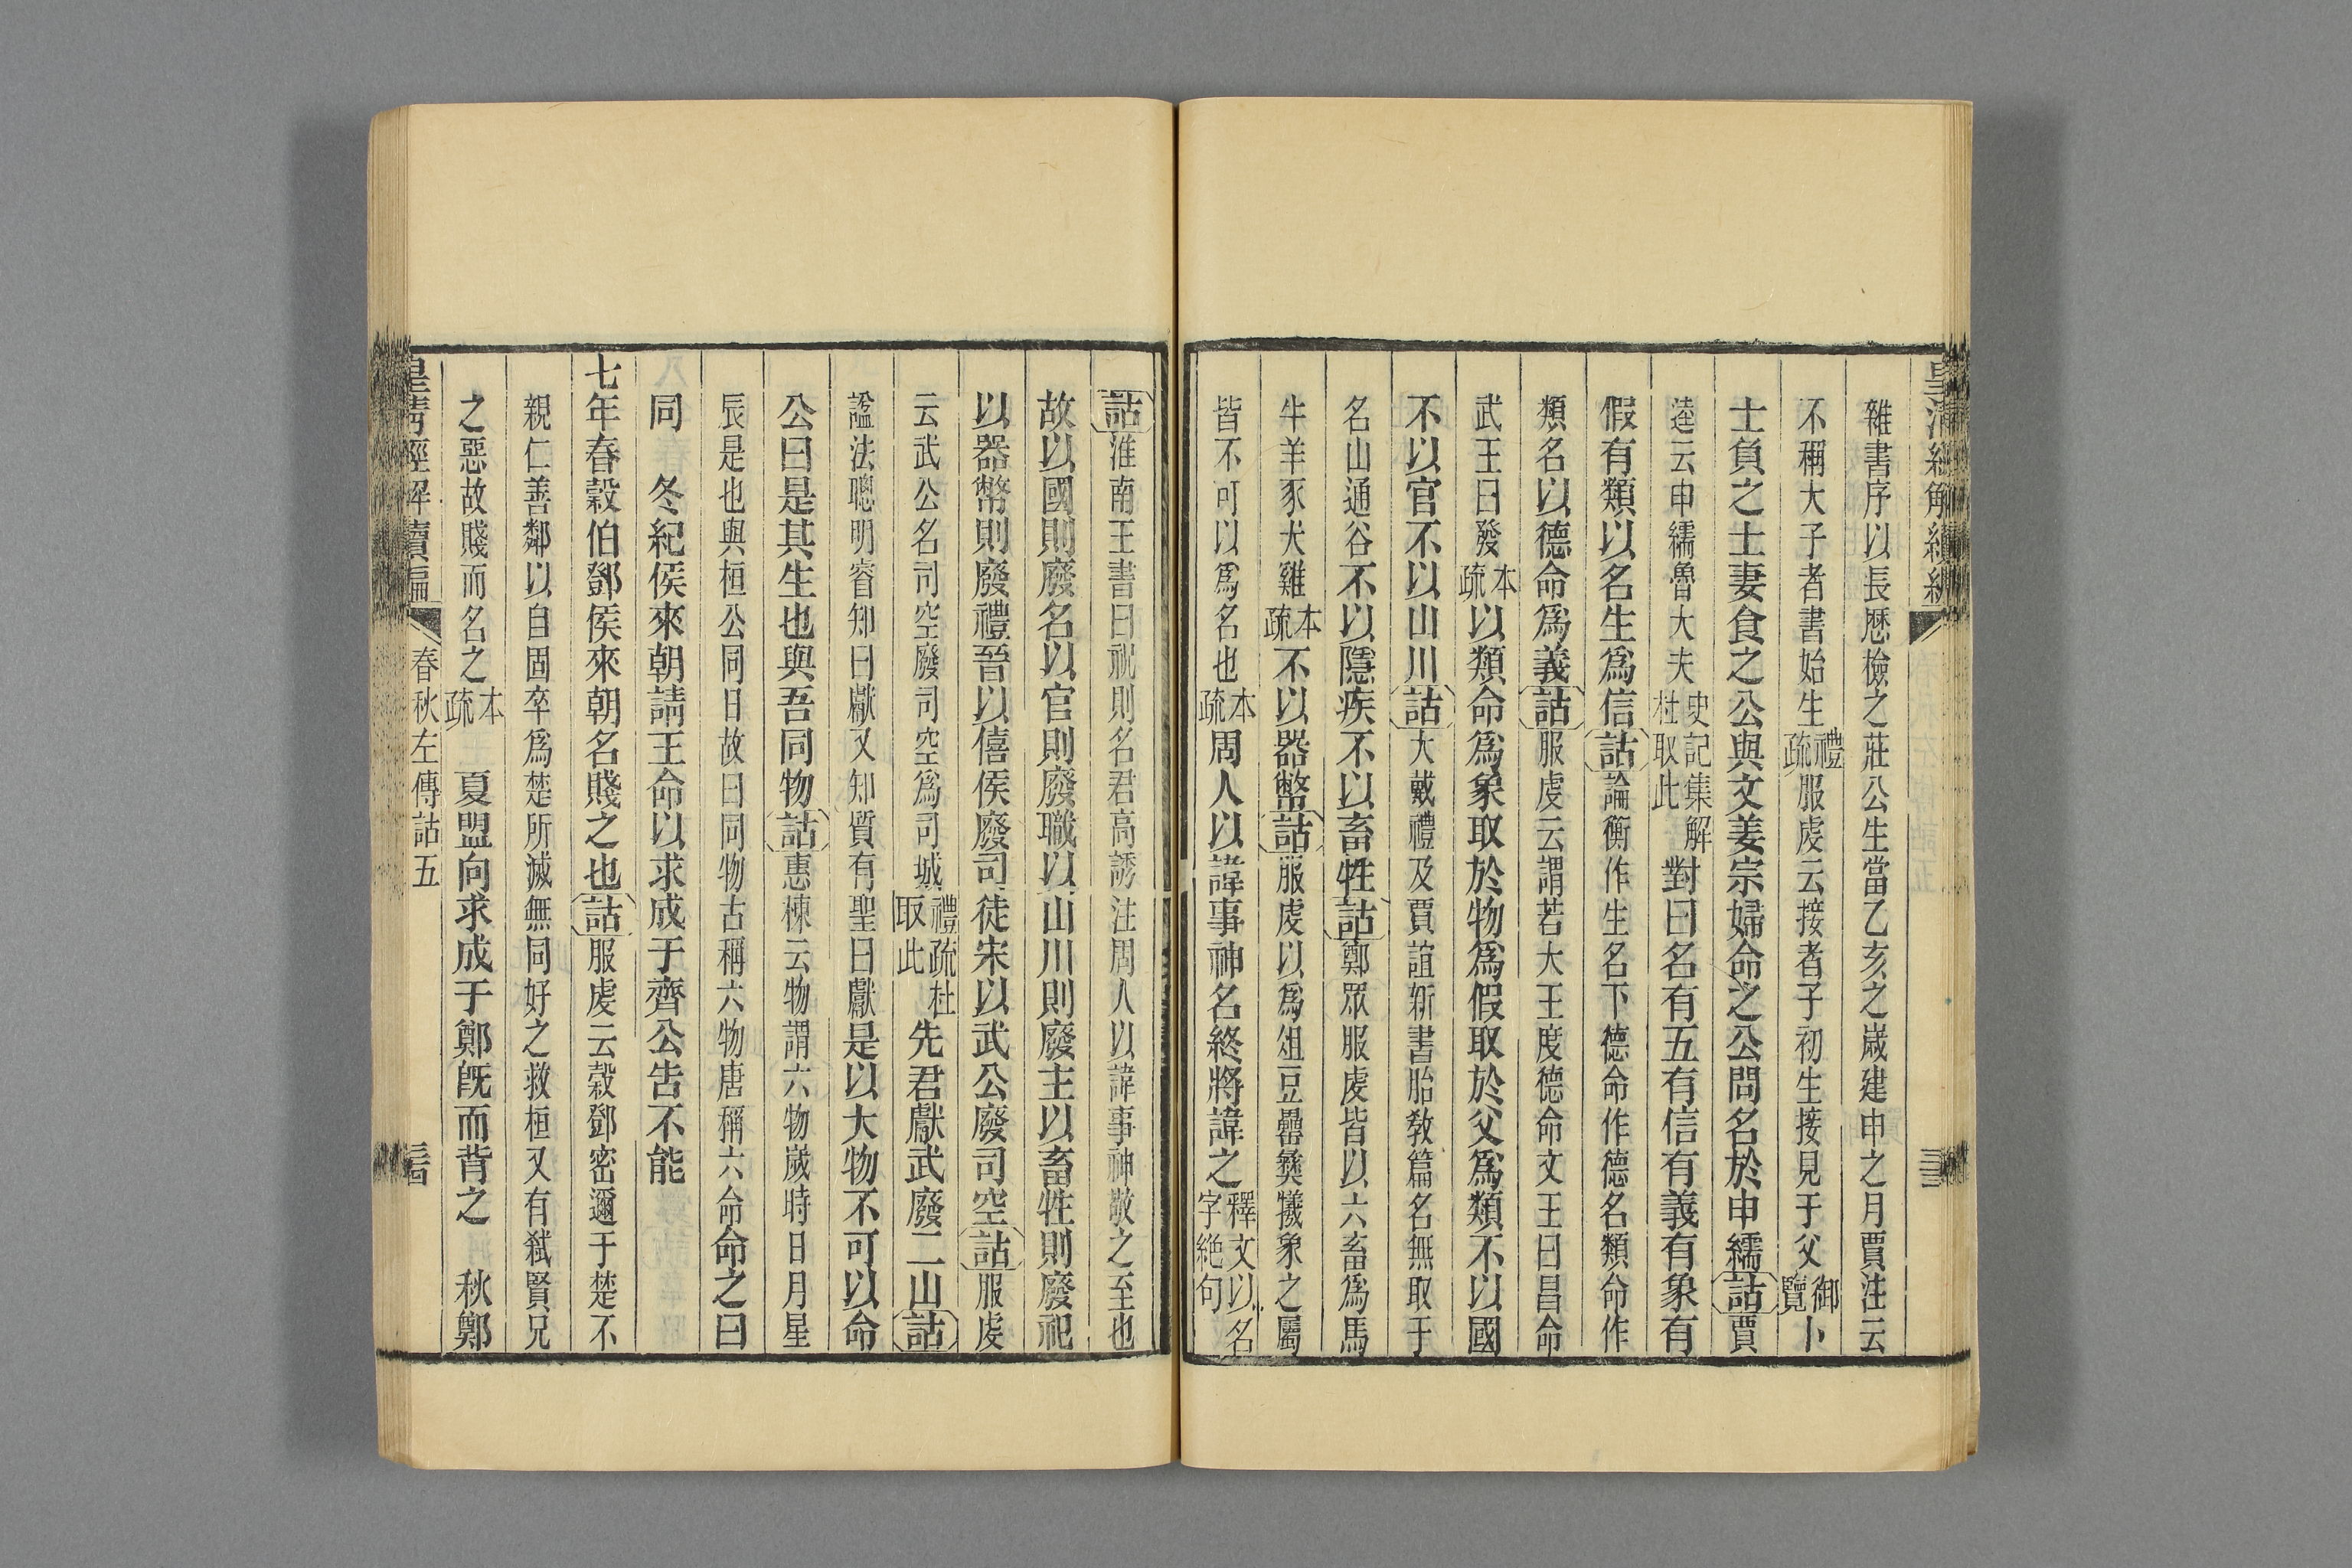 皇清經解續編
雜書序以長歷檢之莊公生當乙亥之歲建申之月賈注云
不稱大子者書始生禮疏服虔云接者子初生接見于父御覽卜
士負之士妻食之公與文姜宗婦命之公問名於申繻詁賈
逵云申繻魯大夫史記集解杜取此對曰名有五有信有義有象有
假有類以名生爲信詁論衡作生名下德命作德名類命作
類名以德命爲義詁服虔云謂若大王度德命文王曰昌命
武王曰發本疏以類命爲象取於物爲假取於父爲類不以國
不以官不以山川詁大戴禮及賈誼新書胎敎篇名無取于
名山通谷不以隱疾不以畜牲詁鄭眾服虔皆以六畜爲馬
牛羊豕犬雞本疏不以器幣詁服虔以爲俎豆罍彝犧象之屬
皆不可以爲名也本疏周人以諱事神名終將諱之釋文以名字絶句
詁淮南王書曰祝則名君高誘注周人以諱事神敬之至也
故以國則廢名以官則廢職以山川則廢主以畜牲則廢祀
以器幣則廢禮晉以僖侯廢司徒宋以武公廢司空詁服虔
云武公名司空廢司空爲司城禮疏杜取此先君獻武廢二山詁
諡法聰明睿知曰獻又知質有聖曰獻是以大物不可以命
公曰是其生也與吾同物詁惠棟云物謂六物歲時日月星
辰是也與桓公同日故曰同物古稱六物唐稱六命命之曰
同　冬紀侯來朝請王命以求成于齊公告不能
七年春穀伯鄧侯來朝名賤之也詁服虔云穀鄧密邇于楚不
親仁善鄰以自固卒爲楚所滅無同好之救桓又有弑賢兄
之惡故賤而名之本疏　夏盟向求成于鄭旣而背之　秋鄭
皇清經解續編　春秋左傳詁五